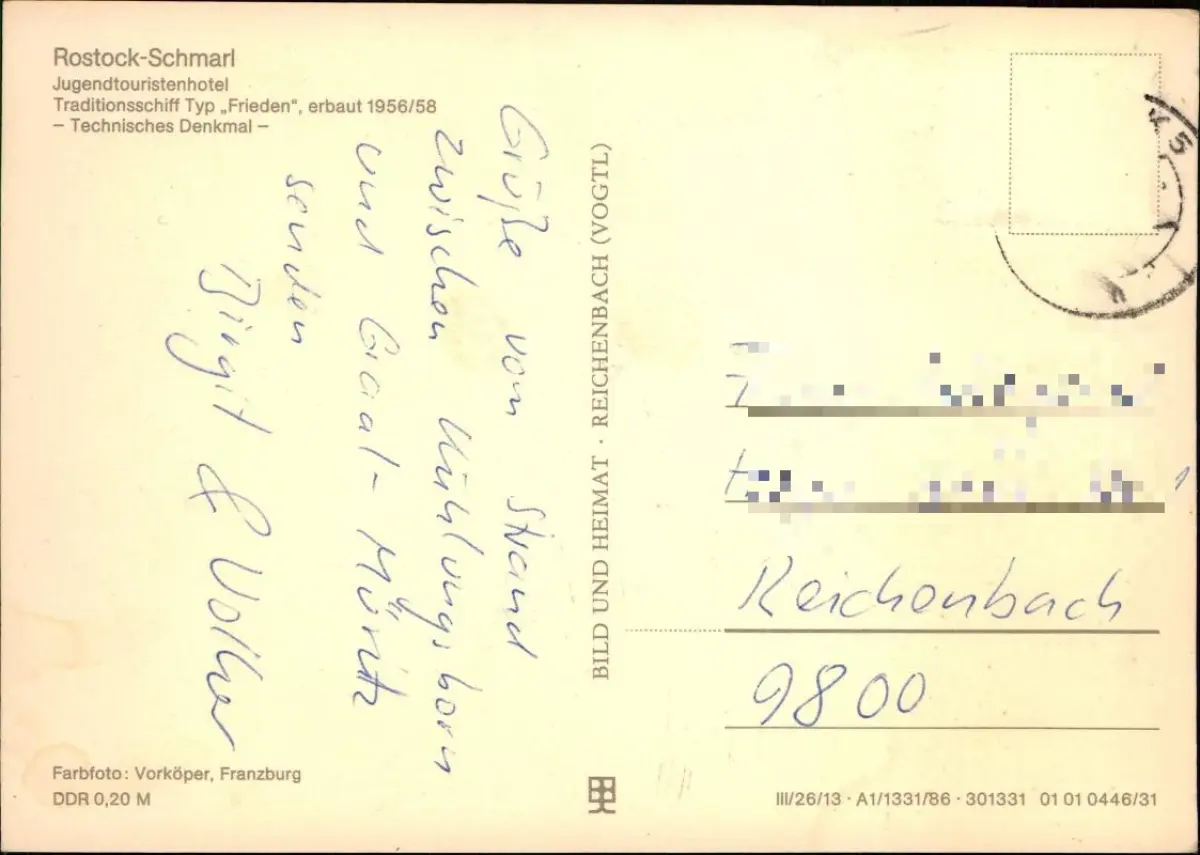 Rostock-Schmarl
Jugendtouristenhotel
Traditionsschiff Typ „Frieden“, erbaut 1956/58
– Technisches Denkmal –
Grüße vom Strand
zwischen Kühlungsborn
und Graal-Müritz
senden
Birgit & Volker
Farbfoto: Vorköper, Franzburg
DDR 0,20 M
BILD UND HEIMAT · REICHENBACH (VOGTL)
Reichenbach
9800
III/26/13 · A1/1331/86 · 301331 01 01 0446/31